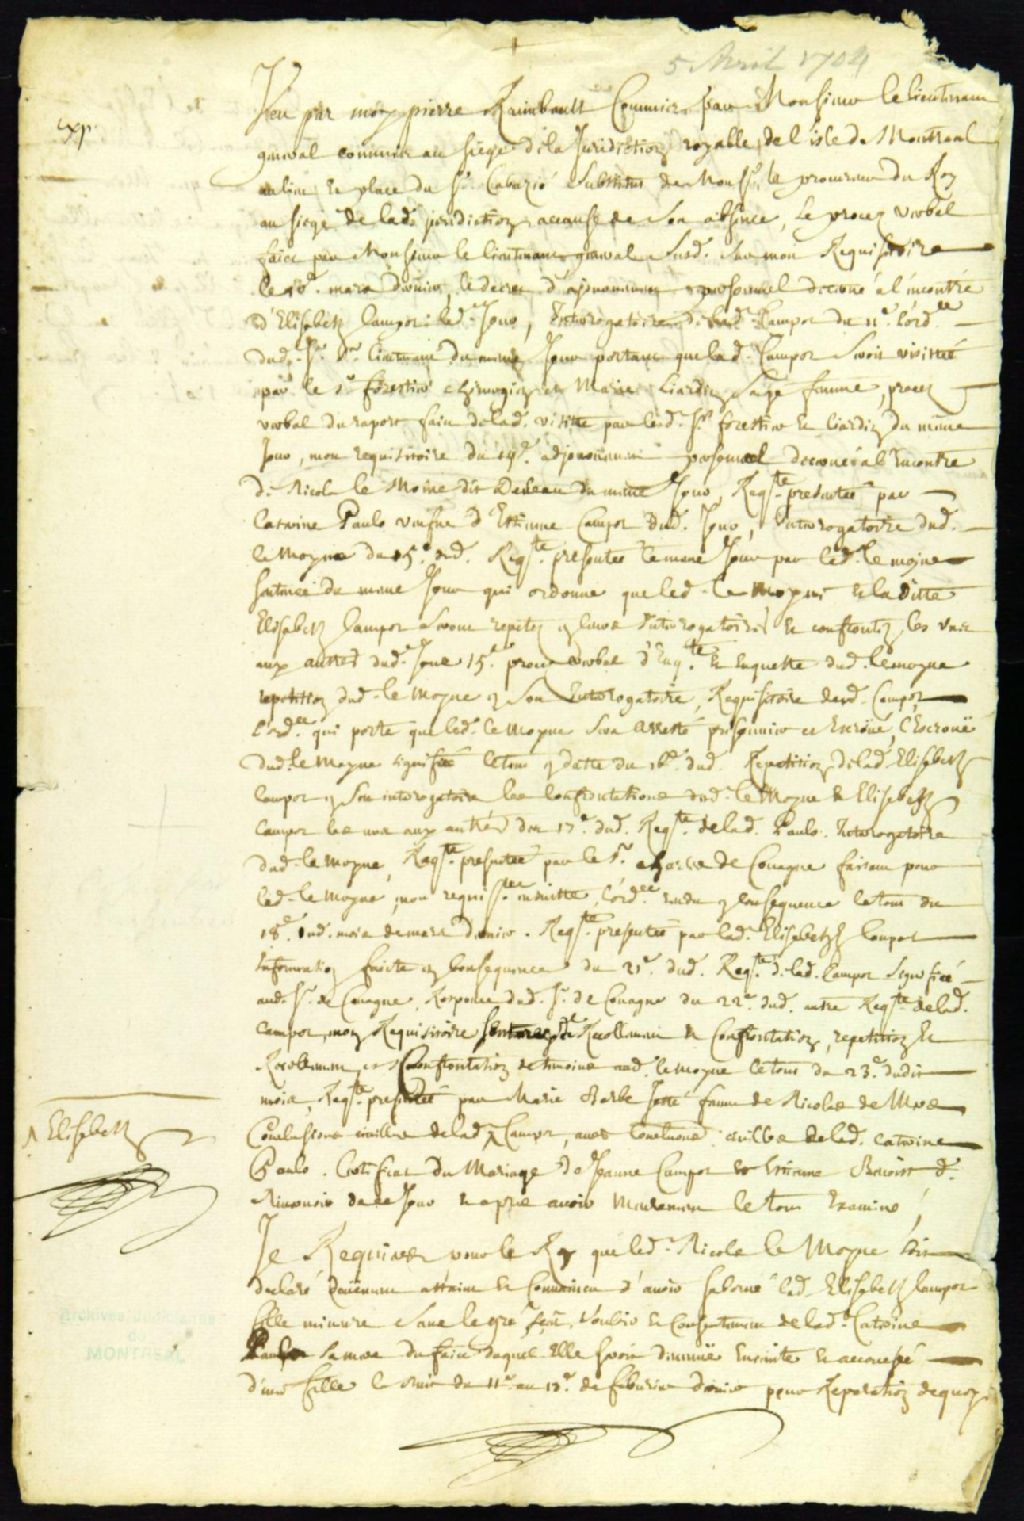 5 Avril 1704
Veu par moy pierre Raimbault Commis par Monsieur le lieutenant
general commis au siege de la Juridiction royalle de l'isle de Montreal
au lieu & place du Sr. Cabazié substitut de Monsr. le procureur du Roy
au siege de lad. juridiction acause de son absence, le proces verbal
faict par Monsieur le lieutenant general Susd. sur mon Requisitoire
le mars dernier, le decret d'ajournement personnel decerné a l'encontre
d'Elisabeth Campot led. Jour, Interrogatoire de lad. Campot du 11e. l'ord.ce
dud. Sr. lieutenant du mesme Jour portant que lad. Campot seroit visittée
par le Sr. forestier chirurgien et Marie Liardin sage femme, proces
verbal du raport faict de lad. visitte par led. Sr. forestier et liardin du mesme
Jour, mon requisitoire du adjournement personnel decerné a l'encontre
de Nicolas le Moine dit du mesme Jour, Reqte. presentée par
Catrine Paulo veufve d'Estienne Campot dud. Jour, Interrogatoire dud.
le Moyne du 15e. dud. Reqte. presentée le mesme Jour par led. le moyne
sentence du mesme Jour qui ordonne que led. le moyne & la ditte
Elisabeth Campot seront repetez en leurs Interrogatoires & confrontez les uns
aux autres dud. Jour 15e. proces verbal d' & enqueste dud. lemoyne
repetition dud. le Moyne en son Interrogatoire, Requisitoire de lad. Campot
l'ord.ce qui porte que led. le Moyne sera arresté prisonnier et Escroué, l'Escroüe
dud. le Moyne signifié le tout en datte du 16e. dud. Repetition de lad. Elisabeth
Campot en son interogatoire les Confrontations dud. le Moyne & Elisabeth
Campot les uns aux autres du 17e. dud. Reqte. de lad. Paulo. Interogatoire
dud. le moyne, Reqte. presentée par le Sr. de Couagne faisant pour
led. le Moyne, mon requisre. ensuitte, l'ord.ce rendu en consequence le tout du
18e. dud. mois de mars dernier. Reqte. presentée par lad. Elisabeth Campot
Information faicte en Consequence du 21e. dud. Reqte. de lad. Campot signifiée
aud. Sr. de Couagne, Reponce dud. Sr. de Couagne du 22e. dud. autre Reqte. de lad.
Campot, mon Requisitoire Sentence de Recollement & Confrontation, repetition &
Recollement et Confrontation de temoins aud. le moyne le tout du 23e. dudit
mois, Reqte. presentée par Marie Barbe femme de Nicolas de
Conclusions civilles de lad. ^ Campot, autres Conclusions civilles de lad. Catrine
^ Elisabeth
Paulo. Certificat du Mariage de Jeanne Campot & Estienne d.
de ce Jour & apres avoir meurement le tout Examiné,
Je Requiers pour le Roy que led. Nicolas le Moyne soit
declaré duëment attaint & Convaincu d'avoir suborné lad. Elisabeth Campot
fille mineure sans le gré, sceu, vouloir & consentement de lad. Catrine
Paulo sa mere du faict duquel Elle seroit devenuë Enceinte & accouchée
d'une fille la nuit du 11e. au 12e. de febvrier dernier pour Reparation dequoy
Archives Judiciaires
de
MONTREAL